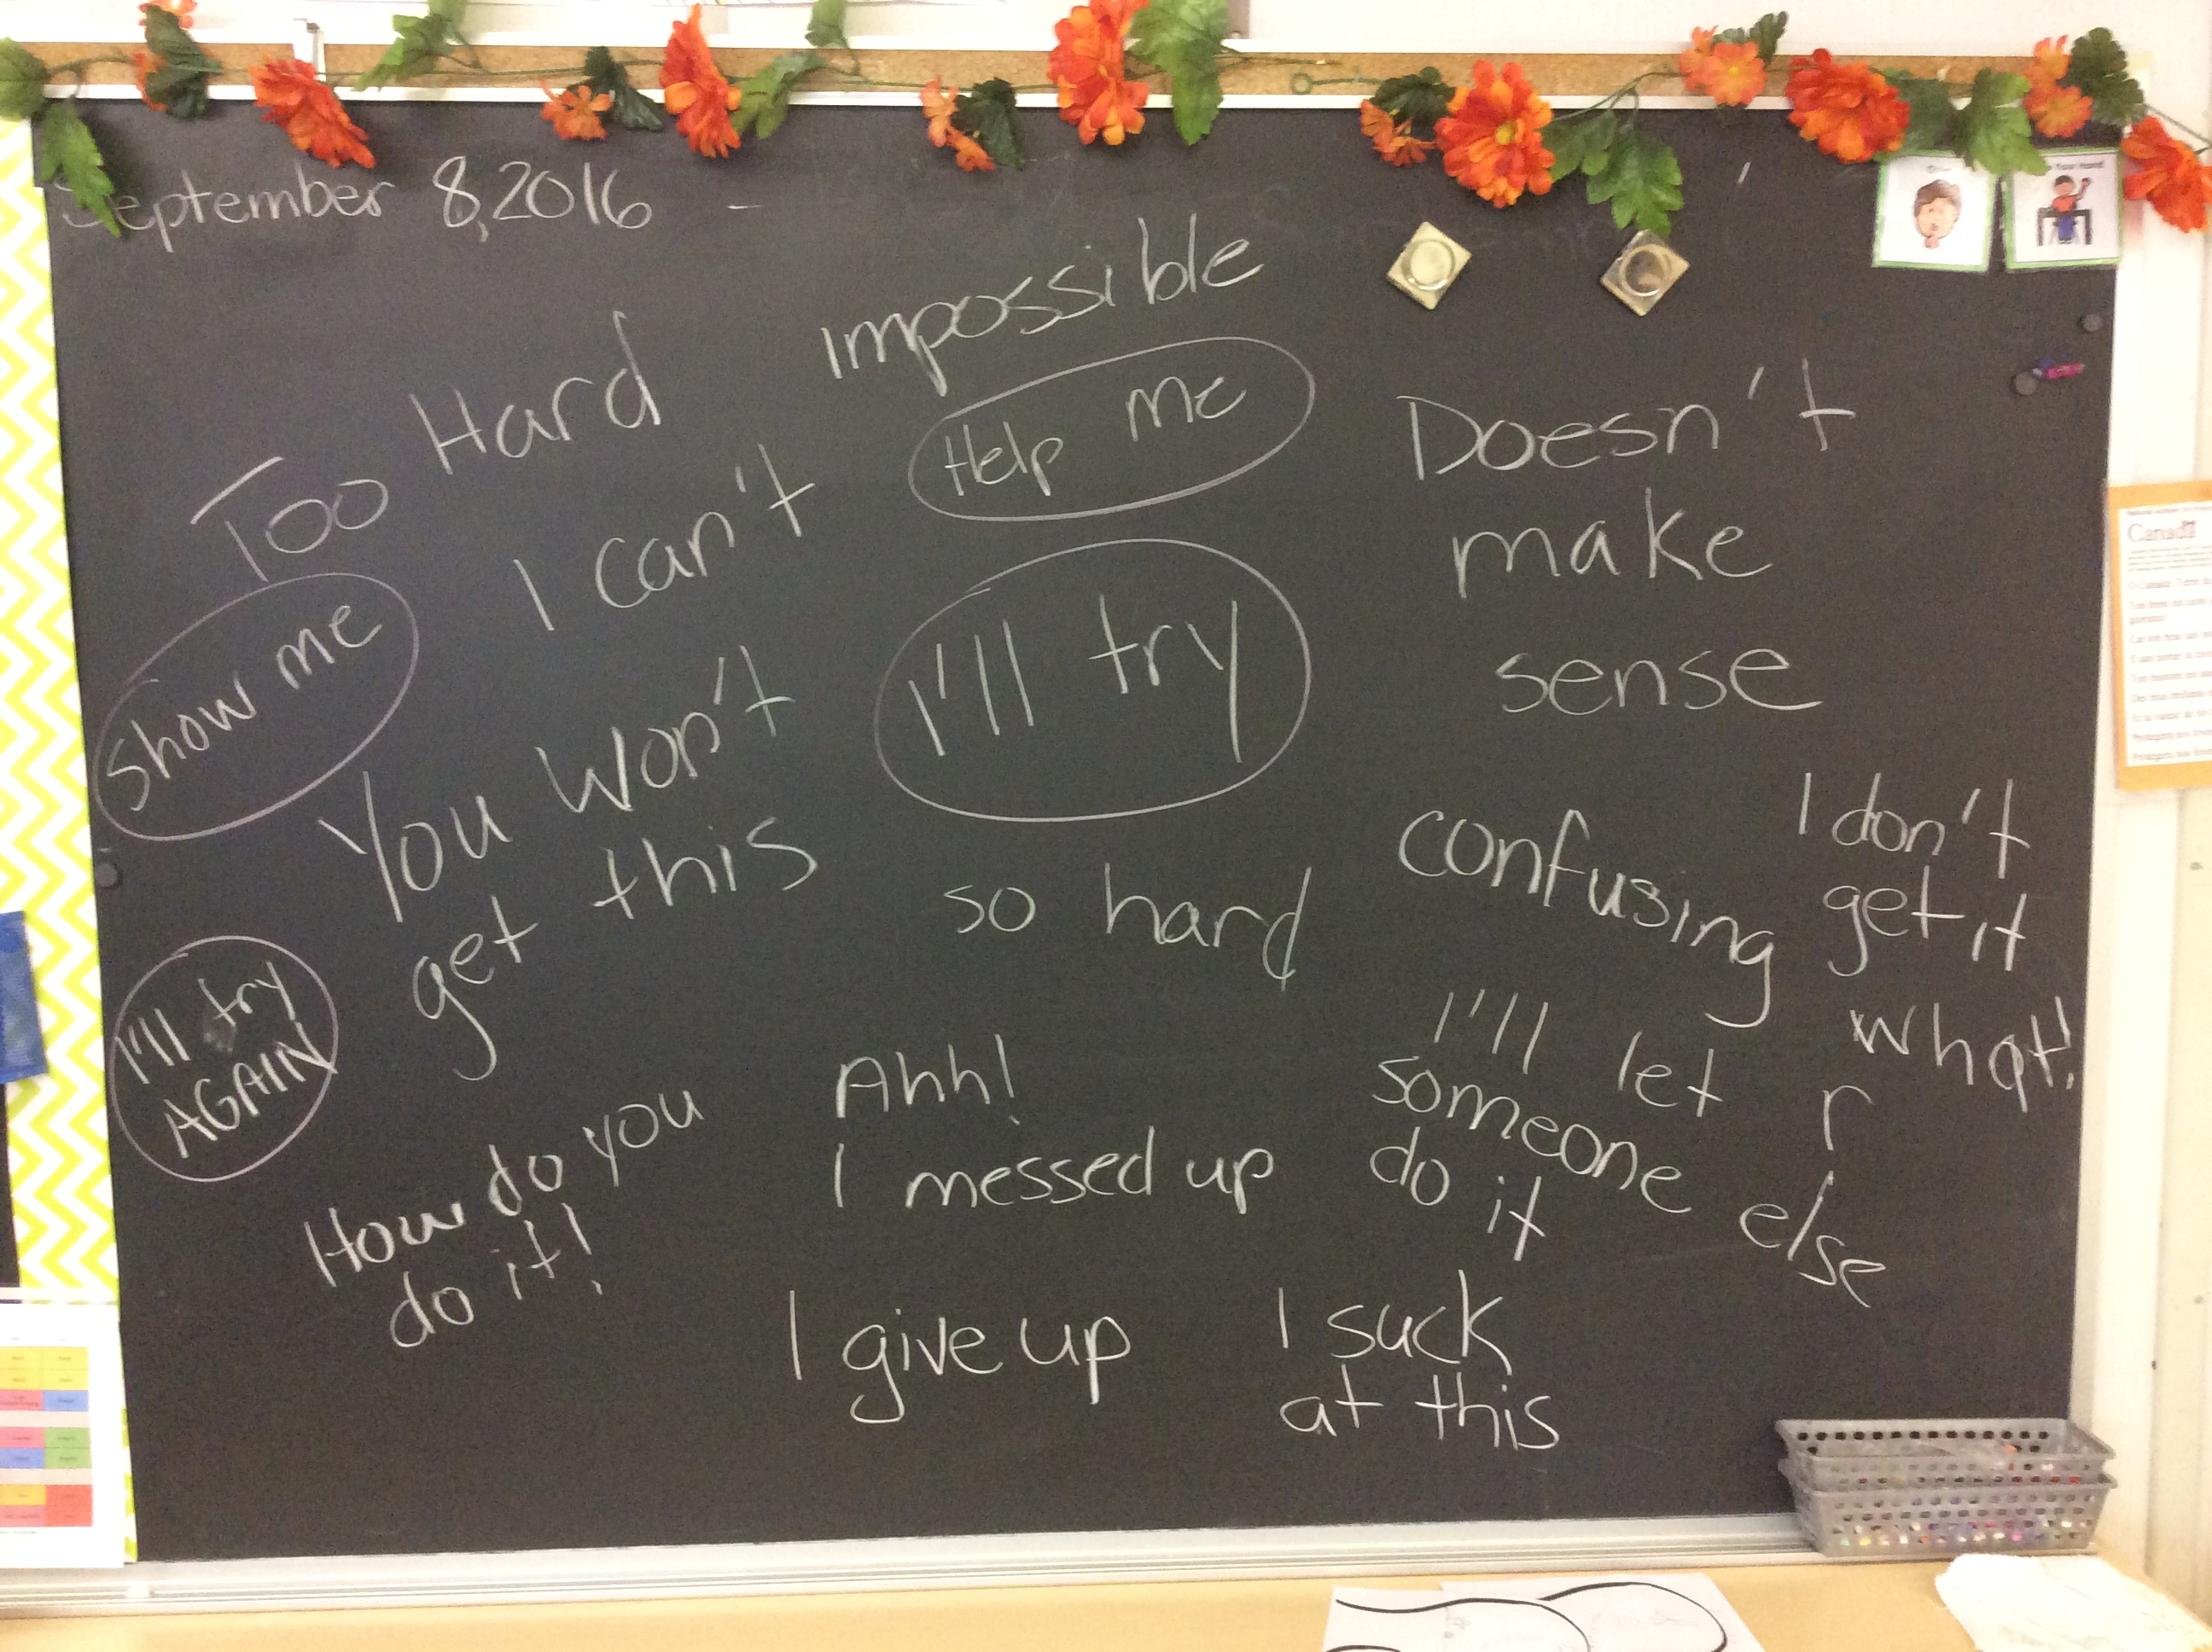 September 8, 2016 -
Impossible
Too Hard
Help me
I can't
Doesn't
make
sense
Show me
I'll try
You won't
get this
so hard
confusing
I don't
get it
what!
I'll try
AGAIN
Ahh!
I messed up
I'll let
someone else
do it
r
How do you
do it!
I give up
I suck
at this
Canada